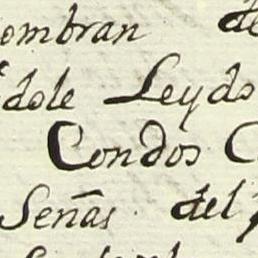 ombran de
dole Leydo
Condos C
Señas del